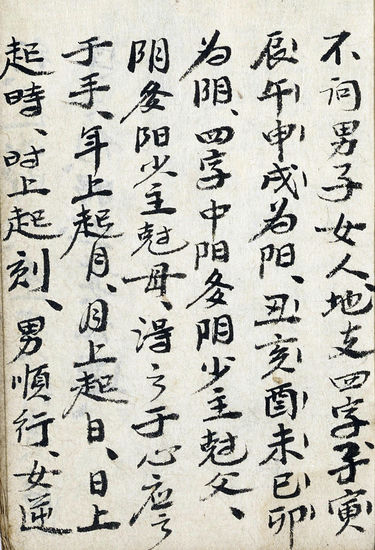 不问男子女人、地支四字、子寅
辰午申戌为阳、丑亥酉未巳卯
为阴、四字中阳多阴少主尅父、
阴多阳少主尅母、得之于心应之
于手、年上起月、月上起日、日上
起時、时上起刻、男順行、女逆